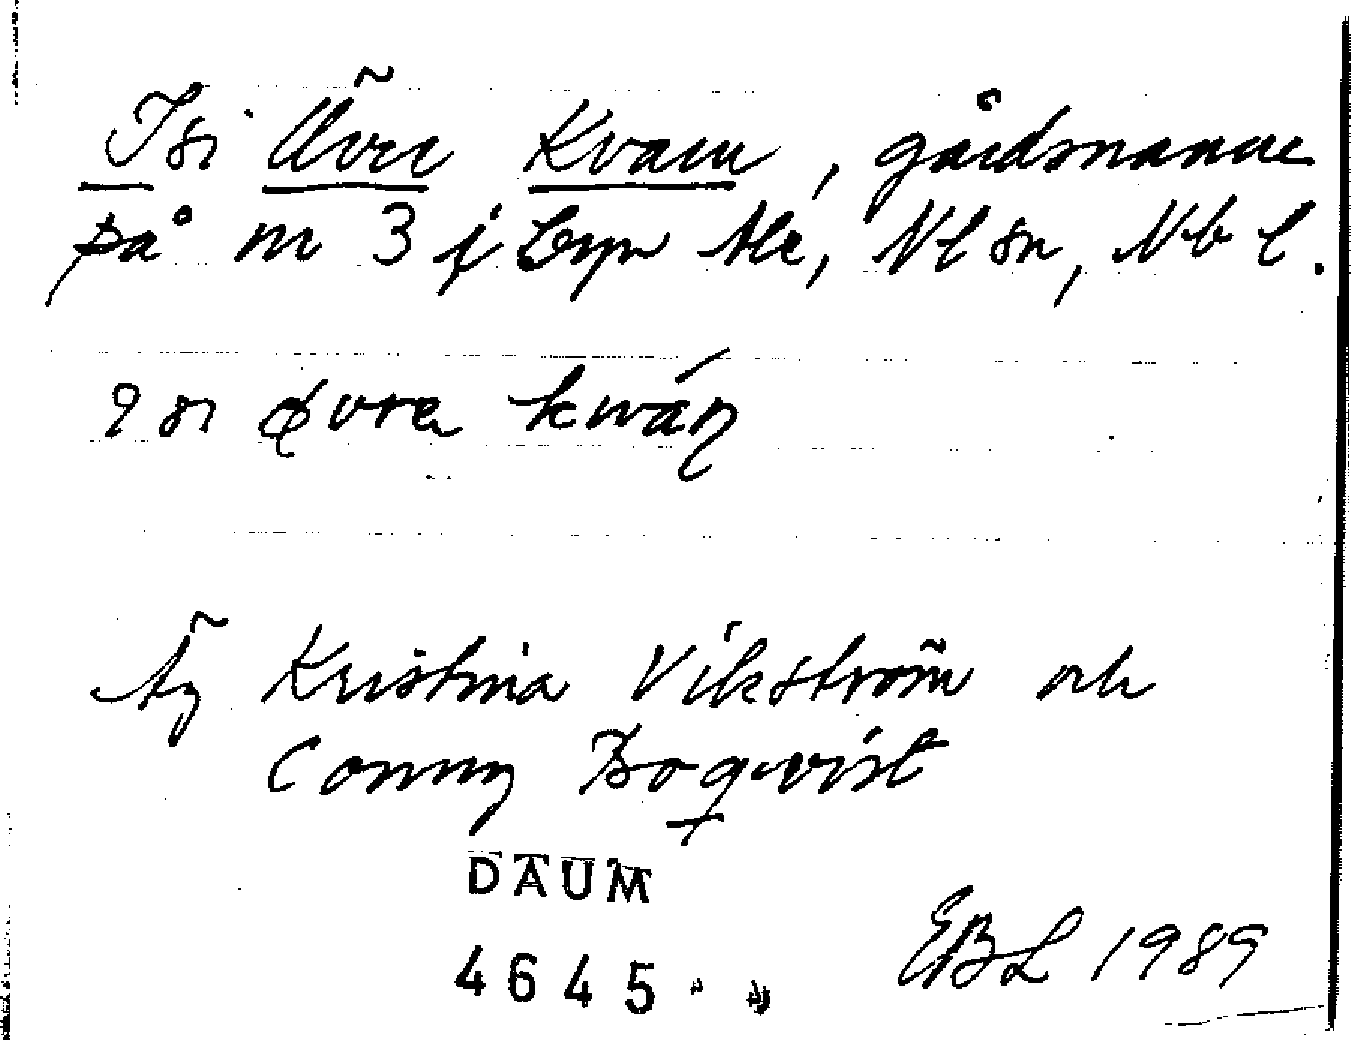 Isi Övre Kvarn, gårdsnamn
på nr 3 i Byn
isi øvre kwáɳ
Äg Kristina Vikström och
Conny Boqvist
DAUM
4645
EBL 1989